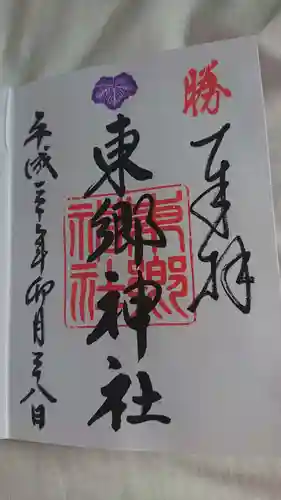 勝
奉拝
東郷神社
東郷神社
平成三十年卯月二十八日